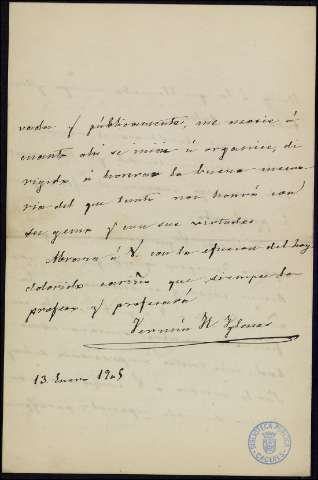 vada y públicamente, me asocie á
cuanto ahí se inicie ú organice, di-
rigido á honrar la buena memo-
ria del que tanto nos honró con
su genio y con sus virtudes.
Abraza á V. con la efusion del hoy
dolorido cariño que siempre le
profesó y profesará
Fermín H. Iglesias
13 Enero 1905
BIBLIOTECA PUBLICA
CACERES